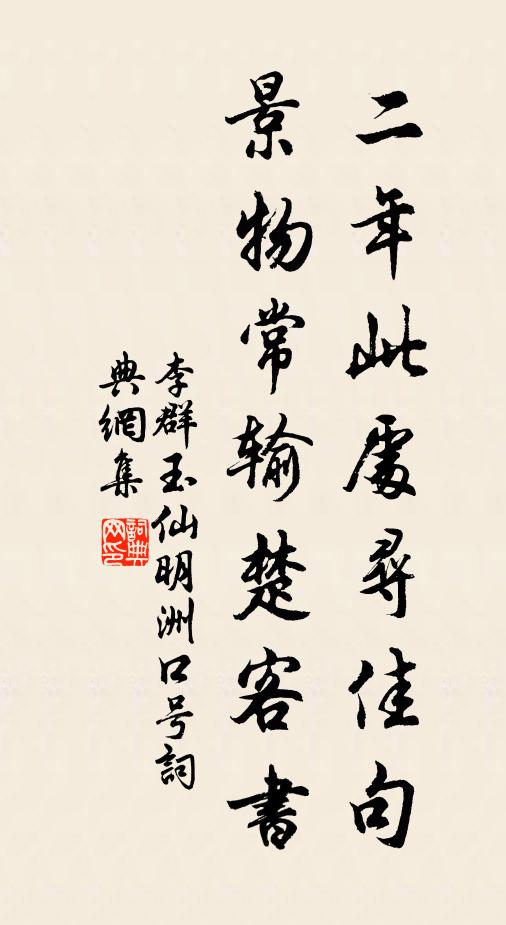 二年此處尋佳句
景物常输楚客書
李群玉仙明洲口号詞
典網集
詞典
网印